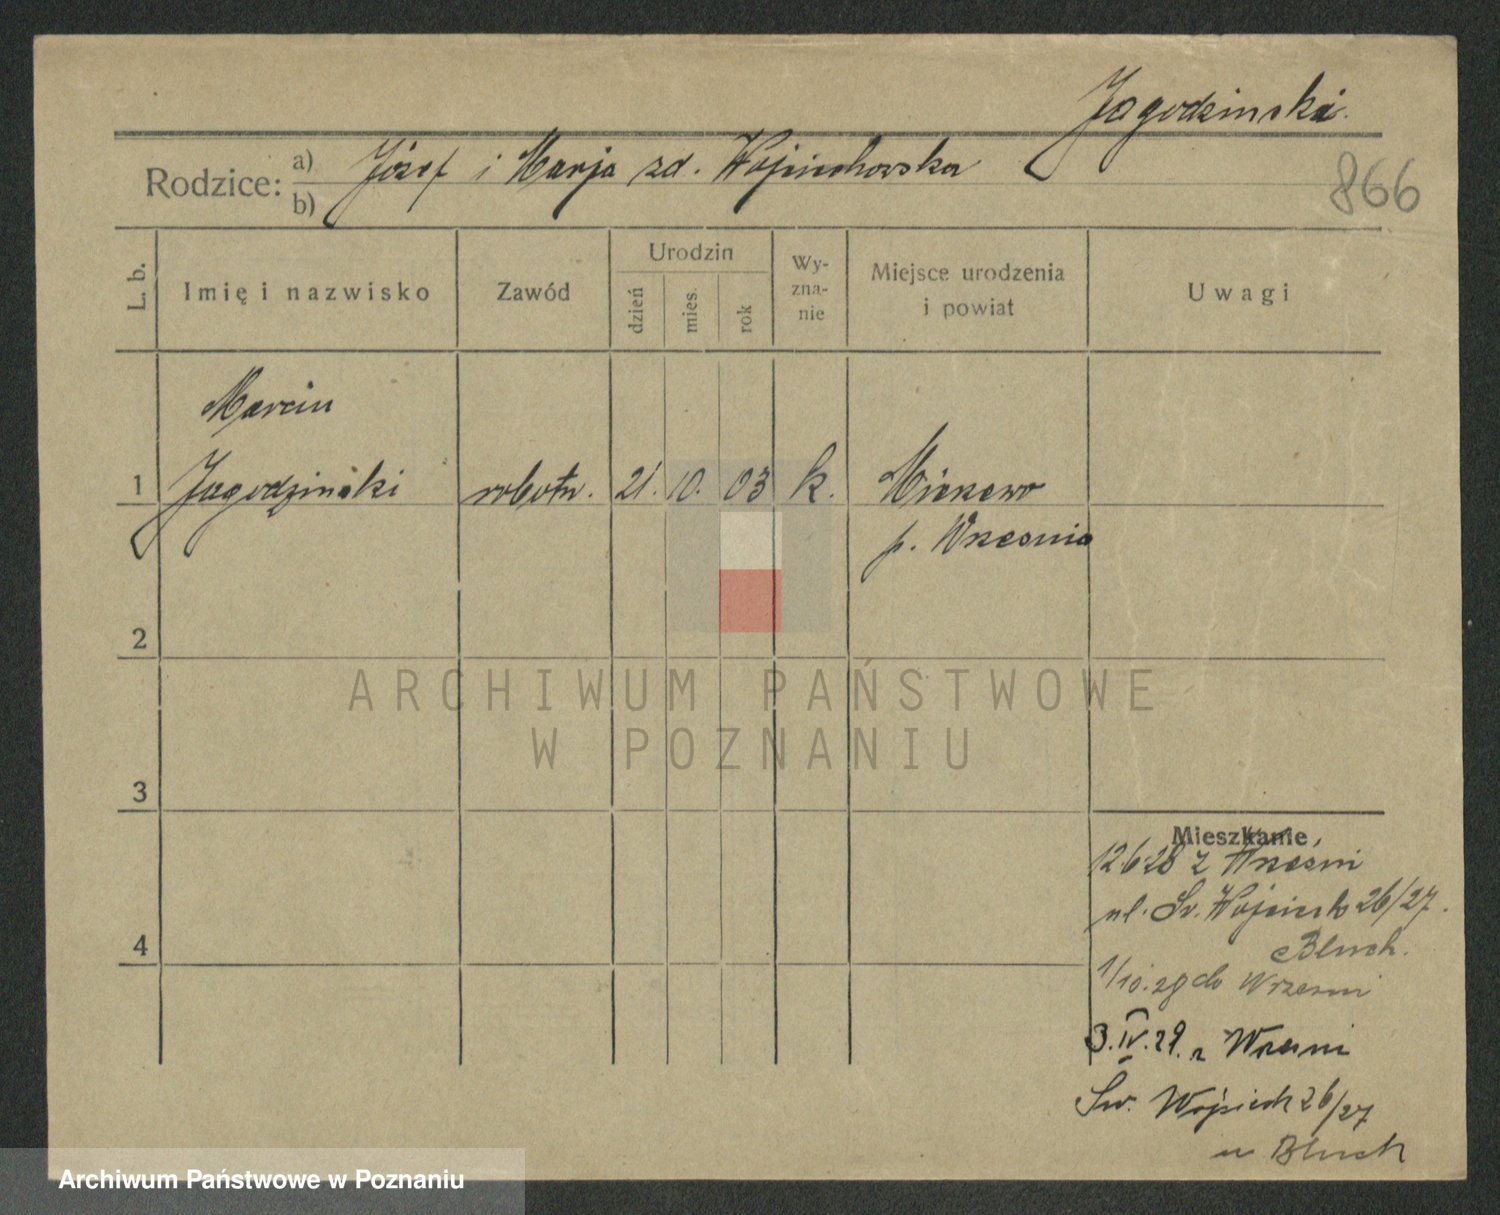 Jagodzinski.
Rodzice: a) Józef i Marja zd. Wojciechowska
b)
866
L. b. Imię i nazwisko Zawód Urodzin dzień mies. rok Wy-zna-nie Miejsce urodzenia i powiat Uwagi
Marcin
1 Jagodzinski robotn. 21. 10. 03 k.
p. Wrzesnia
2
ARCHIWUM PAŃSTWOWE
W POZNANIU
3
Mieszkanie
12.6.28 z Wrześni
ul. Św. Wojciech 26/27.
4
Bluch.
1/10.28 do Wrzesni
3.IV.29. z Wrzesni
Św. Wojciech 26/27
u Bluch
Archiwum Państwowe w Poznaniu